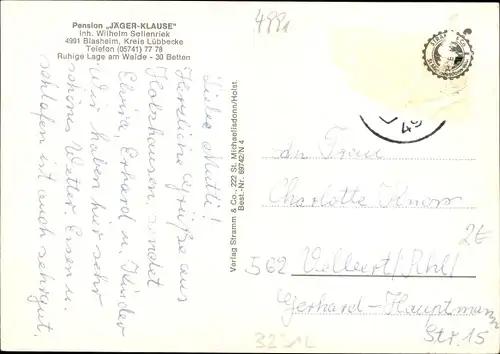 4991
Pension „JÄGER-KLAUSE"
Inh. Wilhelm Sellenriek
4991 Blasheim, Kreis Lübbecke
Telefon (05741) 77 78
Ruhige Lage am Walde - 30 Betten
Liebe Mutti!
Herzliche Grüße aus
Holzhausen, sendet
Elvira, Erhard u. Kinder
Wir haben hier sehr
schönes Wetter. Essen u.
schlafen ist auch sehr gut.
Verlag Stramm & Co., 222 St. Michaelisdonn/Holst.
Best.-Nr. 69742/N 4
49
An Frau
Charlotte Knorr
562 Velbert/Rhl/
Gerhard-Hauptmann
Str. 15
2€